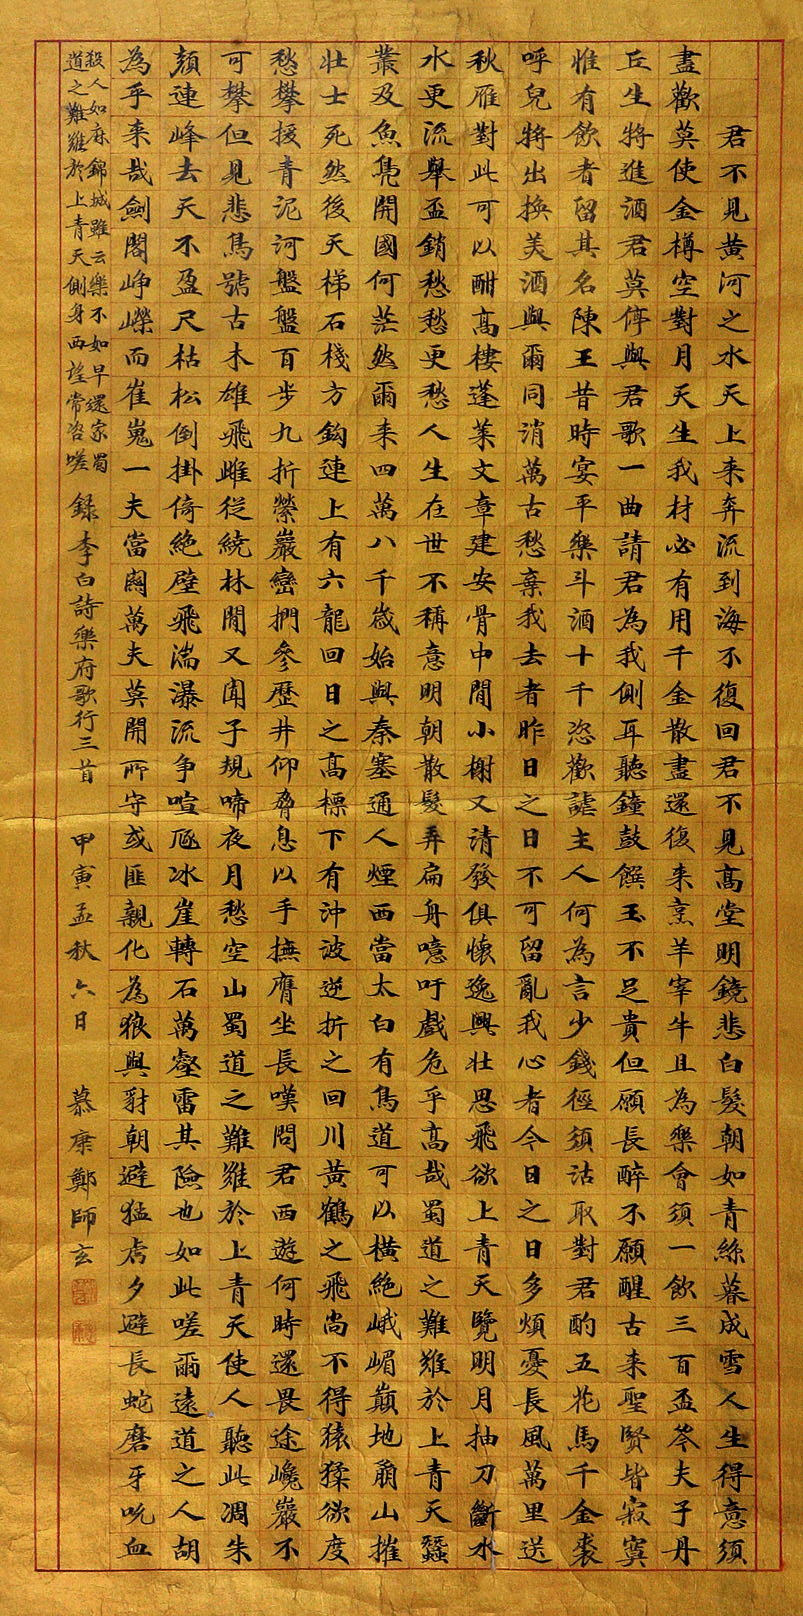 君不見黃河之水天上来奔流到海不復回君不見高堂明鏡悲白髮朝如青絲暮成雪人生得意須
盡歡莫使金樽空對月天生我材必有用千金散盡還復来烹羊宰牛且為樂會須一飲三百盃岑夫子丹
丘生將進酒君莫停與君歌一曲請君為我側耳聽鐘鼓饌玉不足貴但願長醉不願醒古来聖賢皆寂寞
惟有飲者留其名陳王昔時宴平樂斗酒十千恣歡謔主人何為言少錢徑須沽取對君酌五花馬千金裘
呼兒將出換美酒與爾同消萬古愁棄我去者昨日之日不可留亂我心者今日之日多煩憂長風萬里送
秋雁對此可以酣高樓蓬萊文章建安骨中間小榭又清發俱懷逸興壯思飛欲上青天覽明月抽刀斷水
水更流舉盃銷愁愁更愁人生在世不稱意明朝散髮弄扁舟噫吁戲危乎高哉蜀道之難難於上青天蠶
叢及魚鳧開國何茫然爾来四萬八千歲始與秦塞通人煙西當太白有鳥道可以橫絶峨嵋巔地崩山摧
壯士死然後天梯石棧方鉤連上有六龍回日之高標下有沖波逆折之回川黃鶴之飛尚不得猿猱欲度
愁攀援青泥河盤盤百步九折縈巖巒捫參歷井仰脅息以手撫膺坐長嘆問君西遊何時還畏途巉巖不
可攀但見悲鳥號古木雄飛雌從繞林間又聞子規啼夜月愁空山蜀道之難難於上青天使人聽此凋朱
顏連峰去天不盈尺枯松倒掛倚絶壁飛湍瀑流争喧豗冰崖轉石萬壑雷其險也如此嗟爾遠道之人胡
為乎来哉劍閣峥嶸而崔嵬一夫當關萬夫莫開所守或匪親化為狼與豺朝避猛虎夕避長蛇磨牙吮血
殺人如麻錦城雖云樂不如早還家蜀
道之難難於上青天側身西望常咨嗟
録李白詩樂府歌行三首 甲寅孟秋六日 慕康鄭師玄